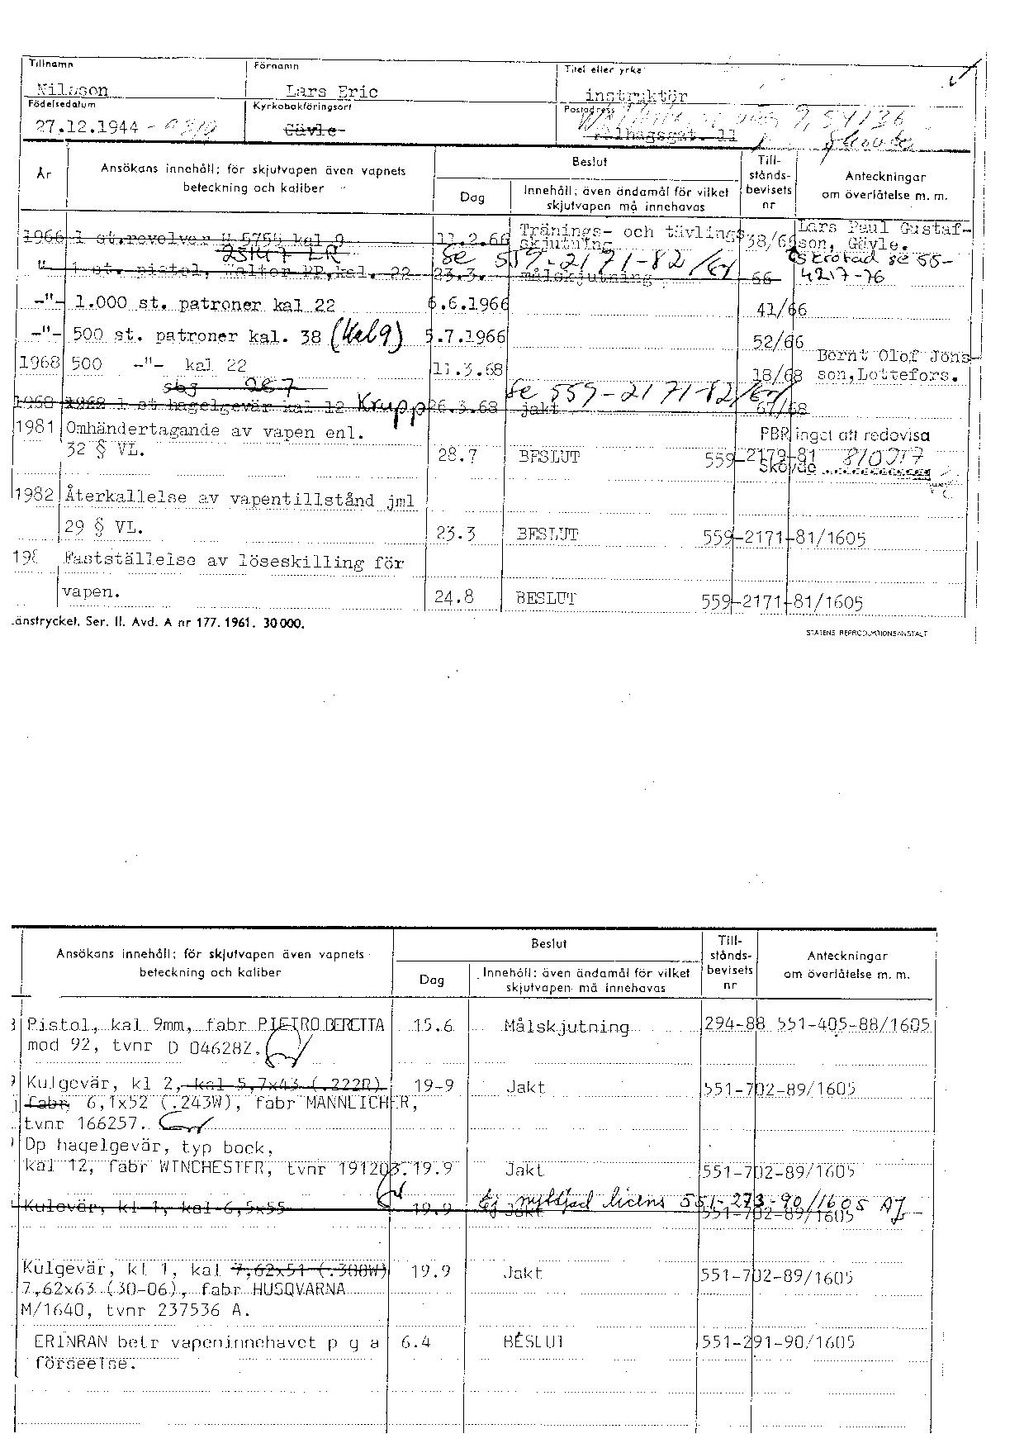 Tillnamn Förnamn Titel eller yrke
Nilsson Lars Eric instruktör
Födelsedatum Kyrkobokföringsort Postadress
27.12.1944 - Gävle 9, 54136
11 Skövde
År Ansökans innehåll; för skjutvapen även vapnets beteckning och kaliber Beslut Till-
stånds-
bevisets
nr Anteckningar
om överlåtelse m. m.
Dag Innehåll; även ändamål för vilket
skjutvapen må innehavas
1966 1 st.revolver kal 9 11.2.66 Tränings- och tävlings
skjutning 38/66 Lars Paul Gustaf-
son, Gävle.
23147 LR Se 559-2171-82/64
" 1 st. pistol, Walter PP, kal. 22 23.3. målskjutning 66 Skrotad se 55-
4217-76
-"- 1.000 st. patroner kal 22 6.6.1966 41/66
-"- 500 st. patroner kal. 38 (kal 9) 5.7.1966 52/66
1968 500 -"- kal 22 11.3.68 18/68 Bernt Olof Jöns-
son, Lottefors.
sbg 267 Se 559-2171-82/64
1968 1968 1 st hagelgevär kal 12 Krupp 26.3.68 jakt 67/68
1981 Omhändertagande av vapen enl.
32 § VL. 28.7 BESLUT 559-2179-81
PBR inget att redovisa
Skövde 810717
1982 Återkallelse av vapentillstånd jml
29 § VL. 23.3 BESLUT 559-2171-81/1605
198 Fastställelse av löseskilling för
vapen. 24.8 BESLUT 559-2171-81/1605
länstrycket. Ser. II. Avd. A nr 177. 1961. 30 000.
STATENS REPRODUKTIONSANSTALT
Ansökans innehåll; för skjutvapen även vapnets
beteckning och kaliber
Beslut
Till-
stånds-
bevisets
nr
Anteckningar
om överlåtelse m. m.
Dag Innehåll; även ändamål för vilket
skjutvapen må innehavas
8 Pistol, kal 9mm, fabr PIETRO BERETTA 15.6 Målskjutning 294-88 551-405-88/1605
mod 92, tvnr D 04628Z.
9 Kulgevär, kl 2, kal 5,7x43 (.222R) 19-9 Jakt 551-702-89/1605
fabr 6,1x52 (.243W), fabr MANNLICHER,
tvnr 166257.
Dp hagelgevär, typ bock,
kal 12, fabr WINCHESTER, tvnr 191203. 19.9 Jakt 551-702-89/1605
Ej nyttjad licens 551-273-90/1605 AJ
Kulgevär, kl 1, kal 6,5x55 19.9 Jakt 551-702-89/1605
Kulgevär, kl 1, kal 7,62x51 (.308W) 19.9 Jakt 551-702-89/1605
7,62x63 (30-06), fabr HUSQVARNA
M/1640, tvnr 237536 A.
ERINRAN betr vapeninnehavet p g a 6.4 BESLUT 551-291-90/1605
förseelse.